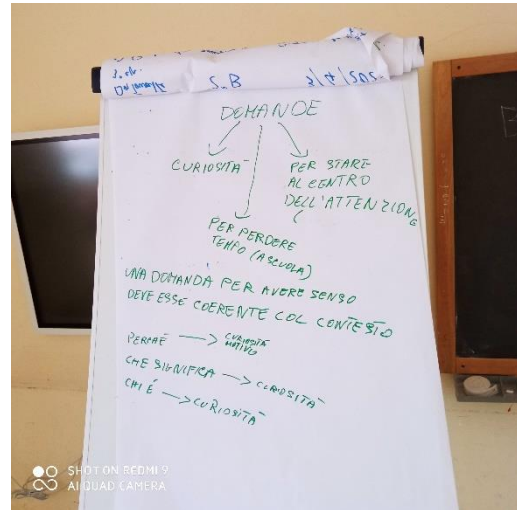 5.B
DOMANDE
CURIOSITÀ
PER STARE
AL CENTRO
DELL'ATTENZIONE
PER PERDERE
TEMPO (A SCUOLA)
UNA DOMANDA PER AVERE SENSO
DEVE ESSE COERENTE COL CONTESTO
PERCHÉ → CURIOSITÀ
MOTIVO
CHE SIGNIFICA → CURIOSITÀ
CHI É → CURIOSITÀ
SHOT ON REDMI 9
AI QUAD CAMERA